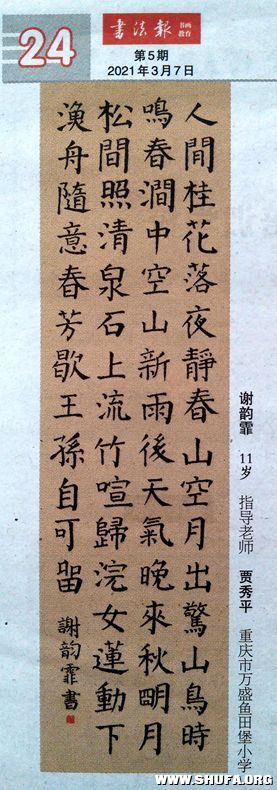 24
書法報
书画
教育
第5期
2021年3月7日
人間桂花落夜靜春山空月出驚山鳥時
鳴春澗中空山新雨後天氣晚來秋明月
松間照清泉石上流竹喧歸浣女蓮動下
漁舟隨意春芳歇王孫自可留 謝韵霏書
谢韵霏 11岁 指导老师 贾秀平 重庆市万盛鱼田堡小学
WWW.SHUFA.ORG